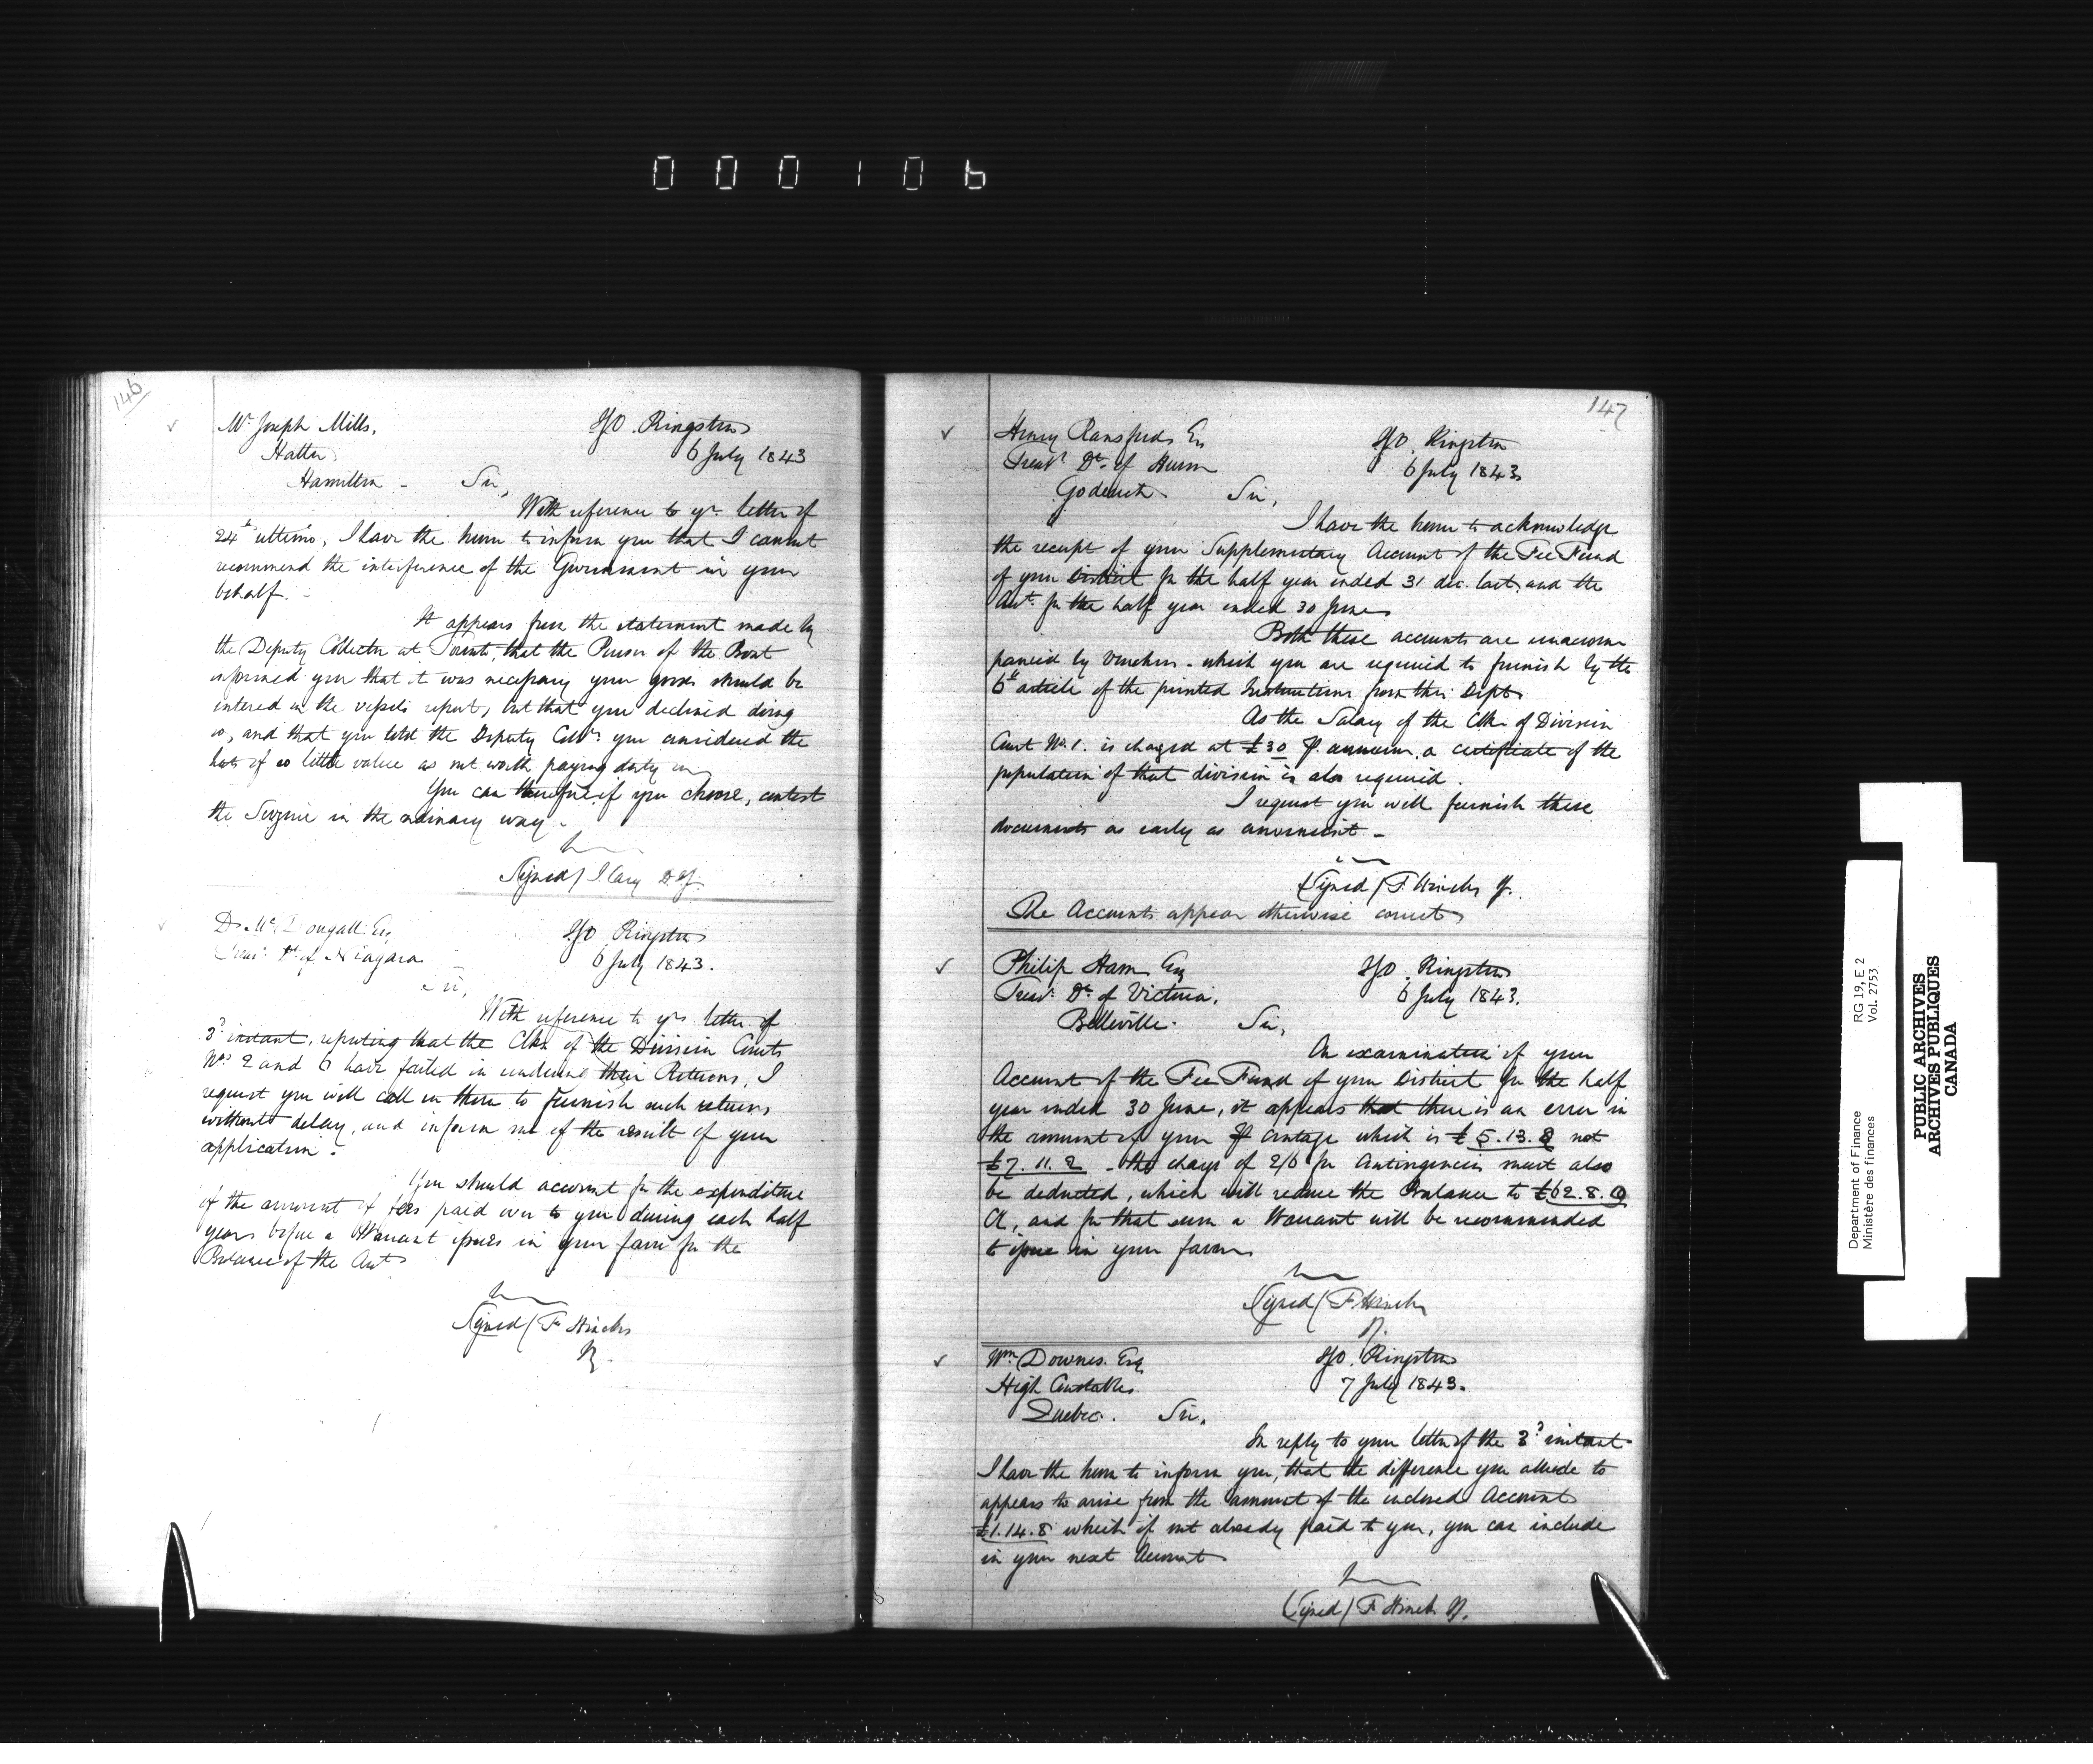 000106
146
Mr Joseph Mills,
Hatter
Hamilton -
IGO. Kingston
6 July 1843
Sir,
With reference to yr. letter of
24th ultimo, I have the honor to inform you that I cannot
recommend the interference of the Government in your
behalf. -
It appears from the statement made by
the Deputy Collector at Toronto, that the Purser of the Boat
informed you that it was necessary your goods should be
entered in the vessels report, but that you declined doing
so, and that you told the Deputy Collr. you considered the
hats of so little value as not worth paying duty on
You can therefore, if you choose, contest
the Seizure in the ordinary way. -
Signed / J Cary D.I.G.
D. McDougall Esq
Treasr. Dt. of Niagara
IGO Kingston
6 July 1843.
Sir,
With reference to yr letter of
3d instant, reporting that the Clks of the Division Courts
Nos 2 and 6 have failed in rendering their Returns, I
request you will call on them to furnish such returns
without delay, and inform me of the result of your
application. -
You should account for the expenditure
of the amount of fees paid over to you during each half
year before a Warrant issues in your favor for the
Balance of the Acct
Signed / F Hincks
IG.
147
Henry Ransford Esq
Treasr Dt. of Huron
Goderich
IGO. Kingston
6 July 1843
Sir,
I have the honor to acknowledge
the receipt of your Supplementary Account of the Fee Fund
of your District for the half year ended 31 dec. last, and the
Acct. for the half year ended 30 June
Both these accounts are unaccom
panied by Vouchers - which you are required to furnish by the
6th article of the printed Instructions from this Dept
As the Salary of the Clk of Division
Court No. 1. is charged at £30 P. annum, a certificate of the
population of that division is also required.
I request you will furnish these
documents as early as convenient -
(Signed / F. Hincks IG.
The Accounts appear otherwise correct
Philip Ham Esq
Treasr. Dt. of Victoria,
Belleville.
IGO. Kingston
6 July 1843.
Sir,
On examination of your
Account of the Fee Fund of your District for the half
year ended 30 June, it appears that there is an error in
the amount of your P Centage which is £5.13.8 not
£7.11.2 - the charge of 2/6 for Contingencies must also
be deducted, which will reduce the Balance to £62.8.9
Cy, and for that sum a Warrant will be recommended
to issue in your favor
Signed / F Hincks
IG.
Wm Downes. Esq
High Constable
Quebec.
IGO. Kingston
7 July 1843.
Sir,
In reply to your letter of the 3d instant
I have the honor to inform you, that the difference you allude to
appears to arise from the amount of the enclosed Account
£1.14.8 which if not already paid to you, you can include
in your next Account
(Signed / F Hincks IG.
Department of Finance
Ministère des finances
RG 19, E 2
Vol. 2753
PUBLIC ARCHIVES
ARCHIVES PUBLIQUES
CANADA